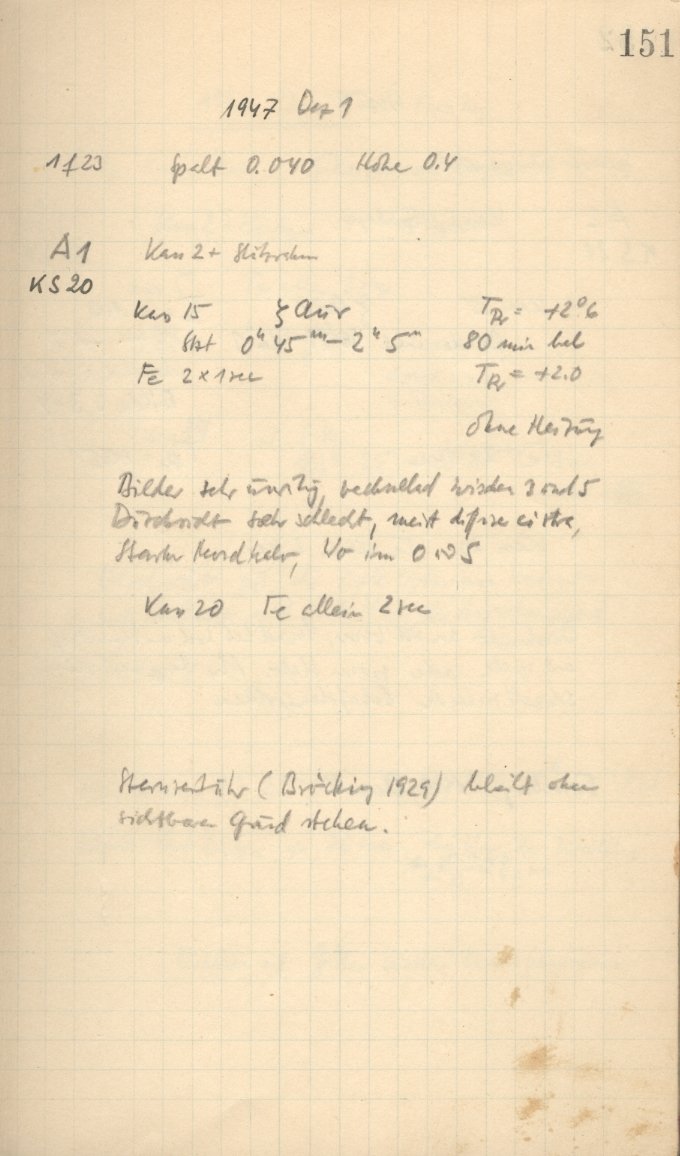 151
1947 Dez 1
1f23 Spalt 0.040 Höhe 0.4
A1 Kass 2 +
KS20
Kass 15 ζ Aur T_Pr = +2°6
Stzt 0h 45m – 2h 5m 80 min bel
Fe 2 x 1 sec T_Pr = +2.0
ohne Heizung
Bilder sehr unruhig, wechselnd zwischen 3 und 5
Durchsicht sehr schlecht, meist diffuse ci stra,
Starker Mondhalo,
Kass 20 Fe allein 2 sec
Sternzeituhr (Bröcking 1929) bleibt ohne
sichtbaren Grund stehen.